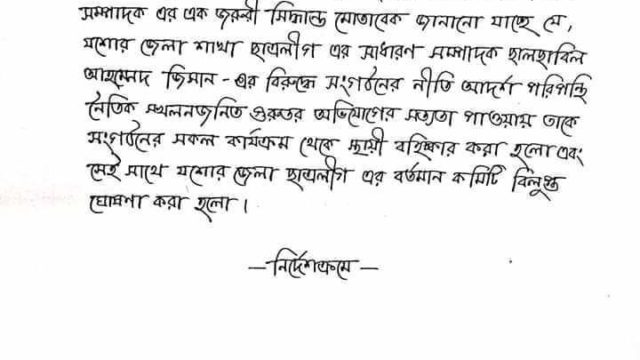 সম্পাদক এর এক জরুরী সিদ্ধান্ত মোতাবেক জানানো যাচ্ছে যে,
যশোর জেলা শাখা ছাত্রলীগ এর সাধারণ সম্পাদক ছালছাবিল
আহমেদ জিসান - এর বিরুদ্ধে সংগঠনের নীতি আদর্শ পরিপন্থি
নৈতিক স্খলনজনিত গুরুতর অভিযোগের সত্যতা পাওয়ায় তাকে
সংগঠনের সকল কার্যক্রম থেকে স্থায়ী বহিষ্কার করা হলো এবং
সেই সাথে যশোর জেলা ছাত্রলীগ এর বর্তমান কমিটি বিলুপ্ত
ঘোষণা করা হলো ।
— নির্দেশক্রমে —